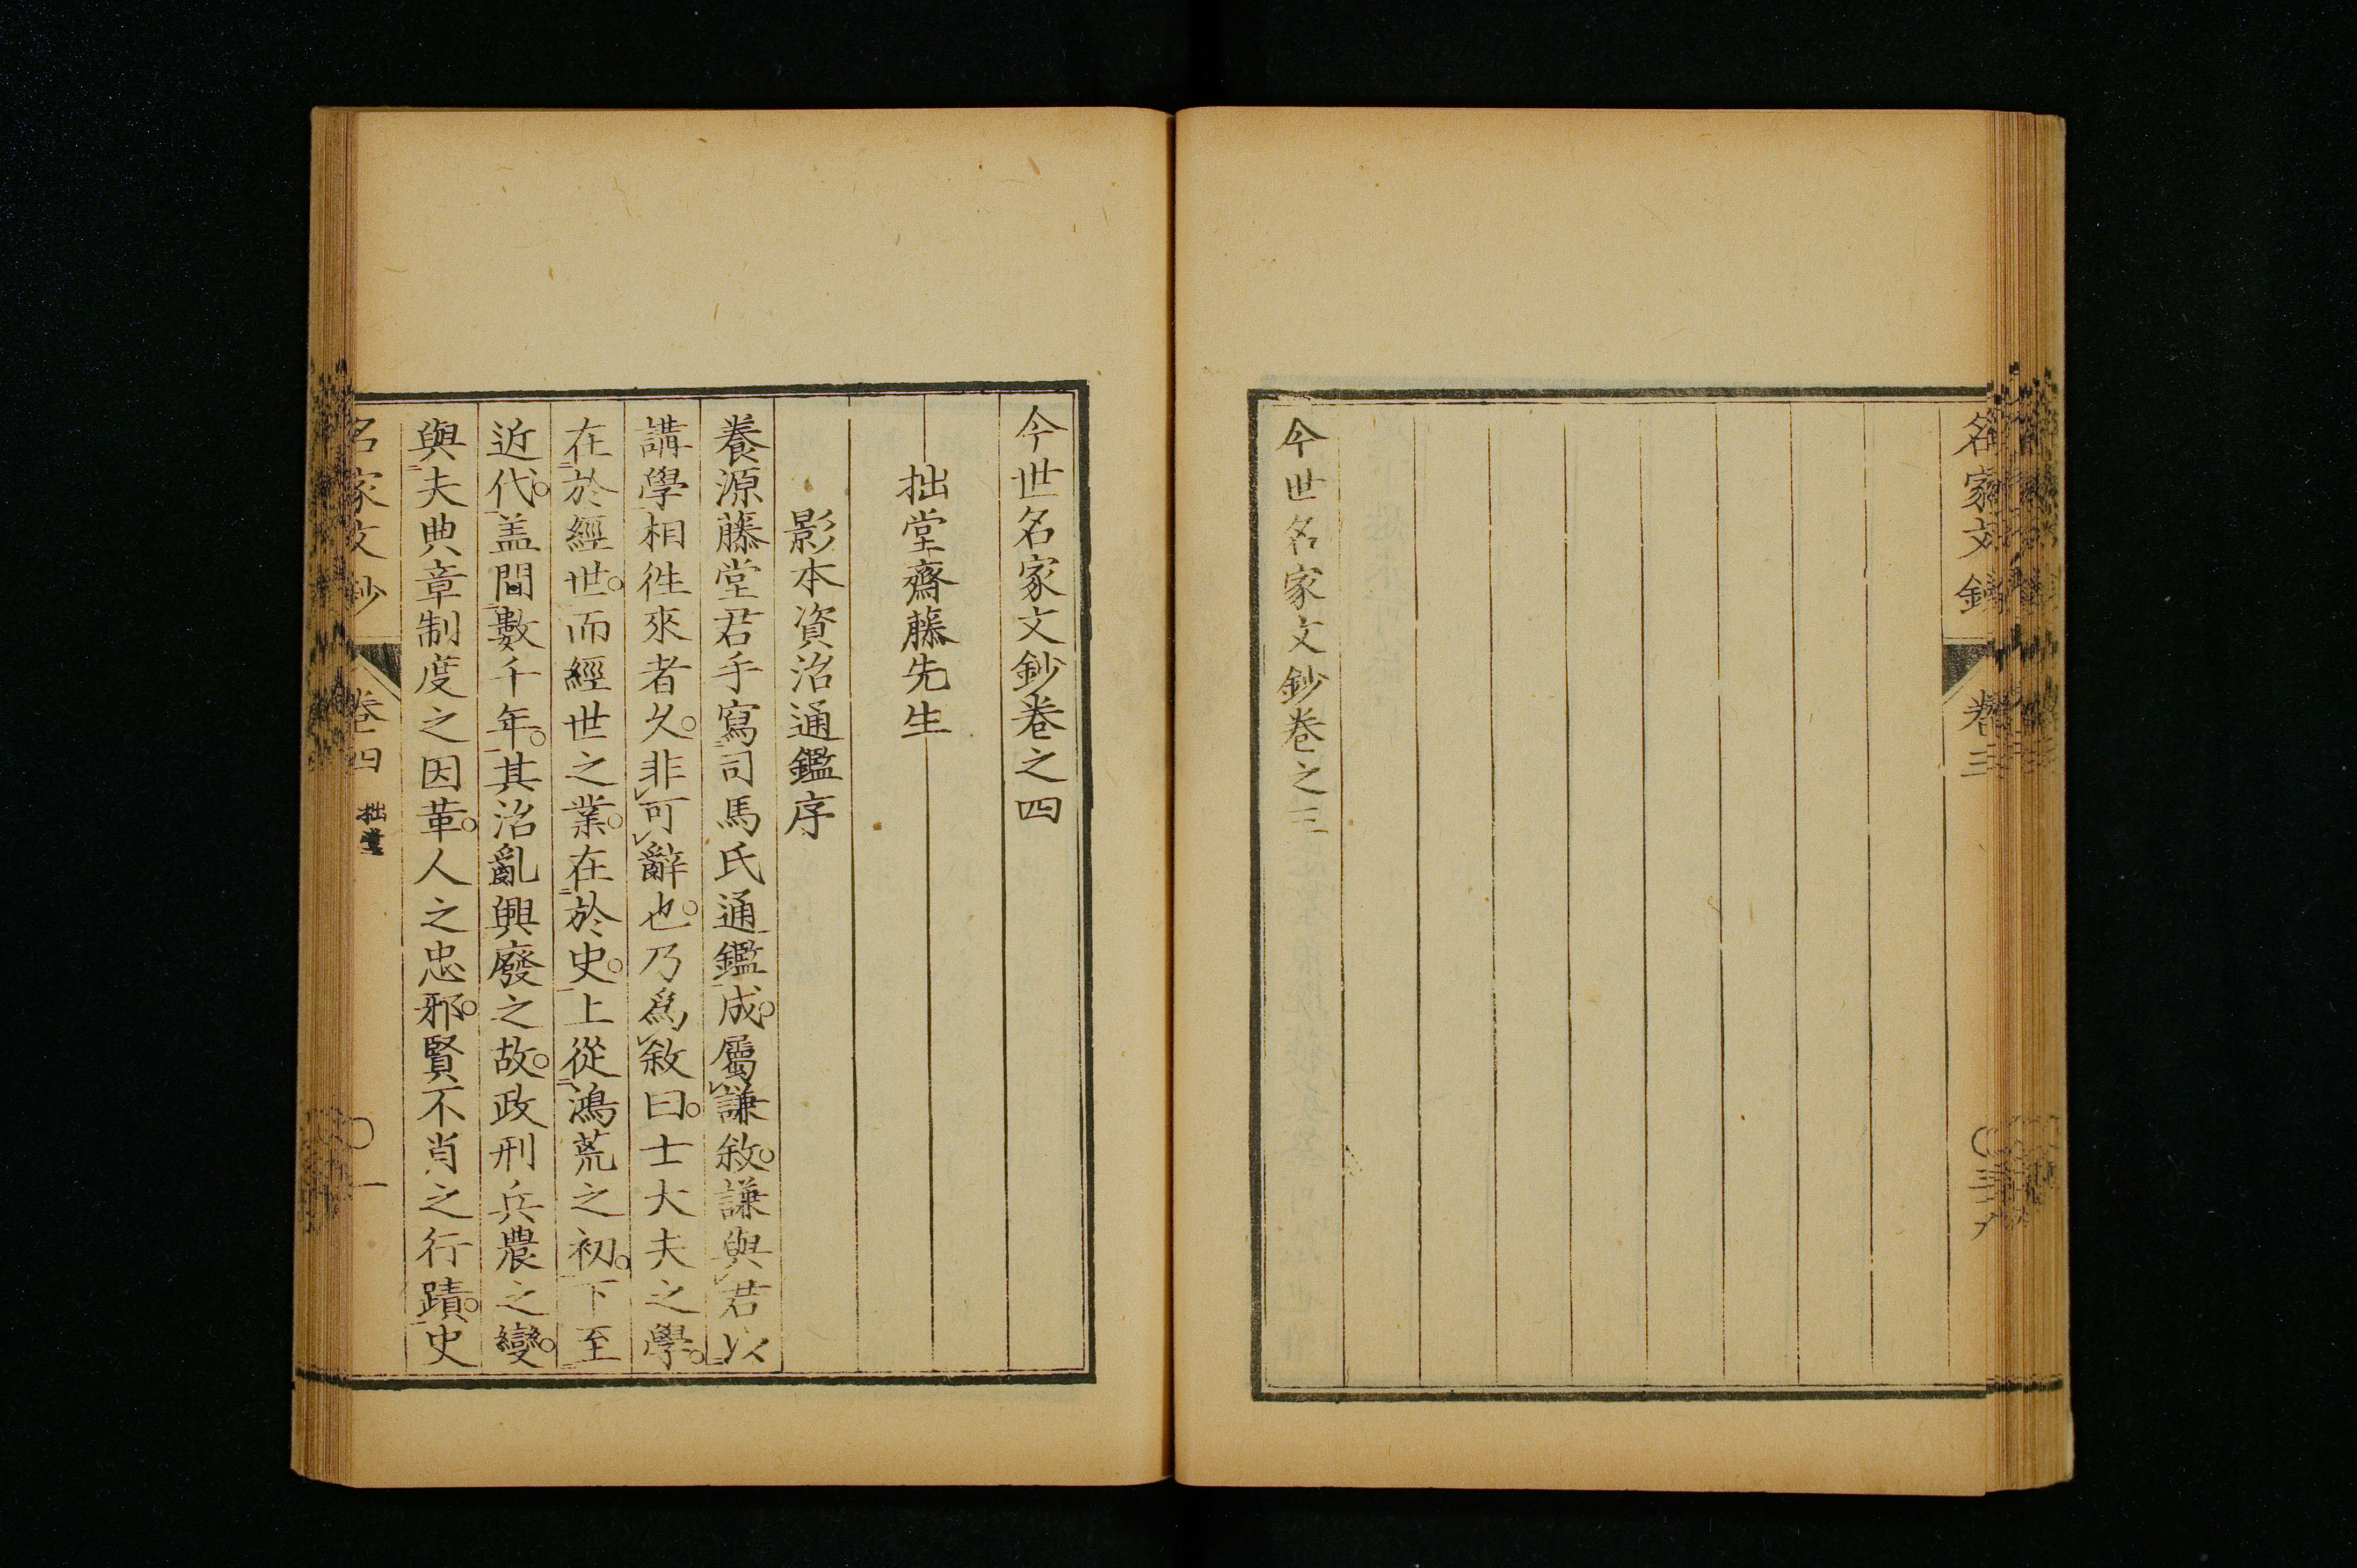 名家文鈔 卷三
今世名家文鈔卷之三
今世名家文鈔卷之四
拙堂齋藤先生
影本資治通鑑序
養源藤堂君手寫司馬氏通鑑成。屬謙敘。謙與君以
講學相徃來者久。非可辭也。乃爲敘曰。士大夫之學。
在於經世。而經世之業。在於史。上從鴻荒之初。下至
近代。盖間數千年。其治亂興廢之故。政刑兵農之變。
與夫典章制度之因革。人之忠邪。賢不肖之行蹟。史
名家文鈔 卷四 拙堂 〇一